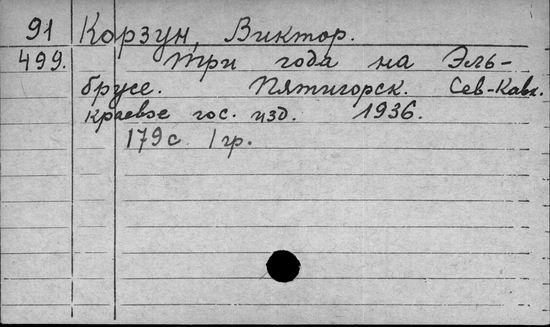 91 Корзун, Виктор.
499. Три года на Эль-
брусе. Пятигорск. Сев-Кавк.
краевое гос. изд. 1936.
179 с. 1 гр.